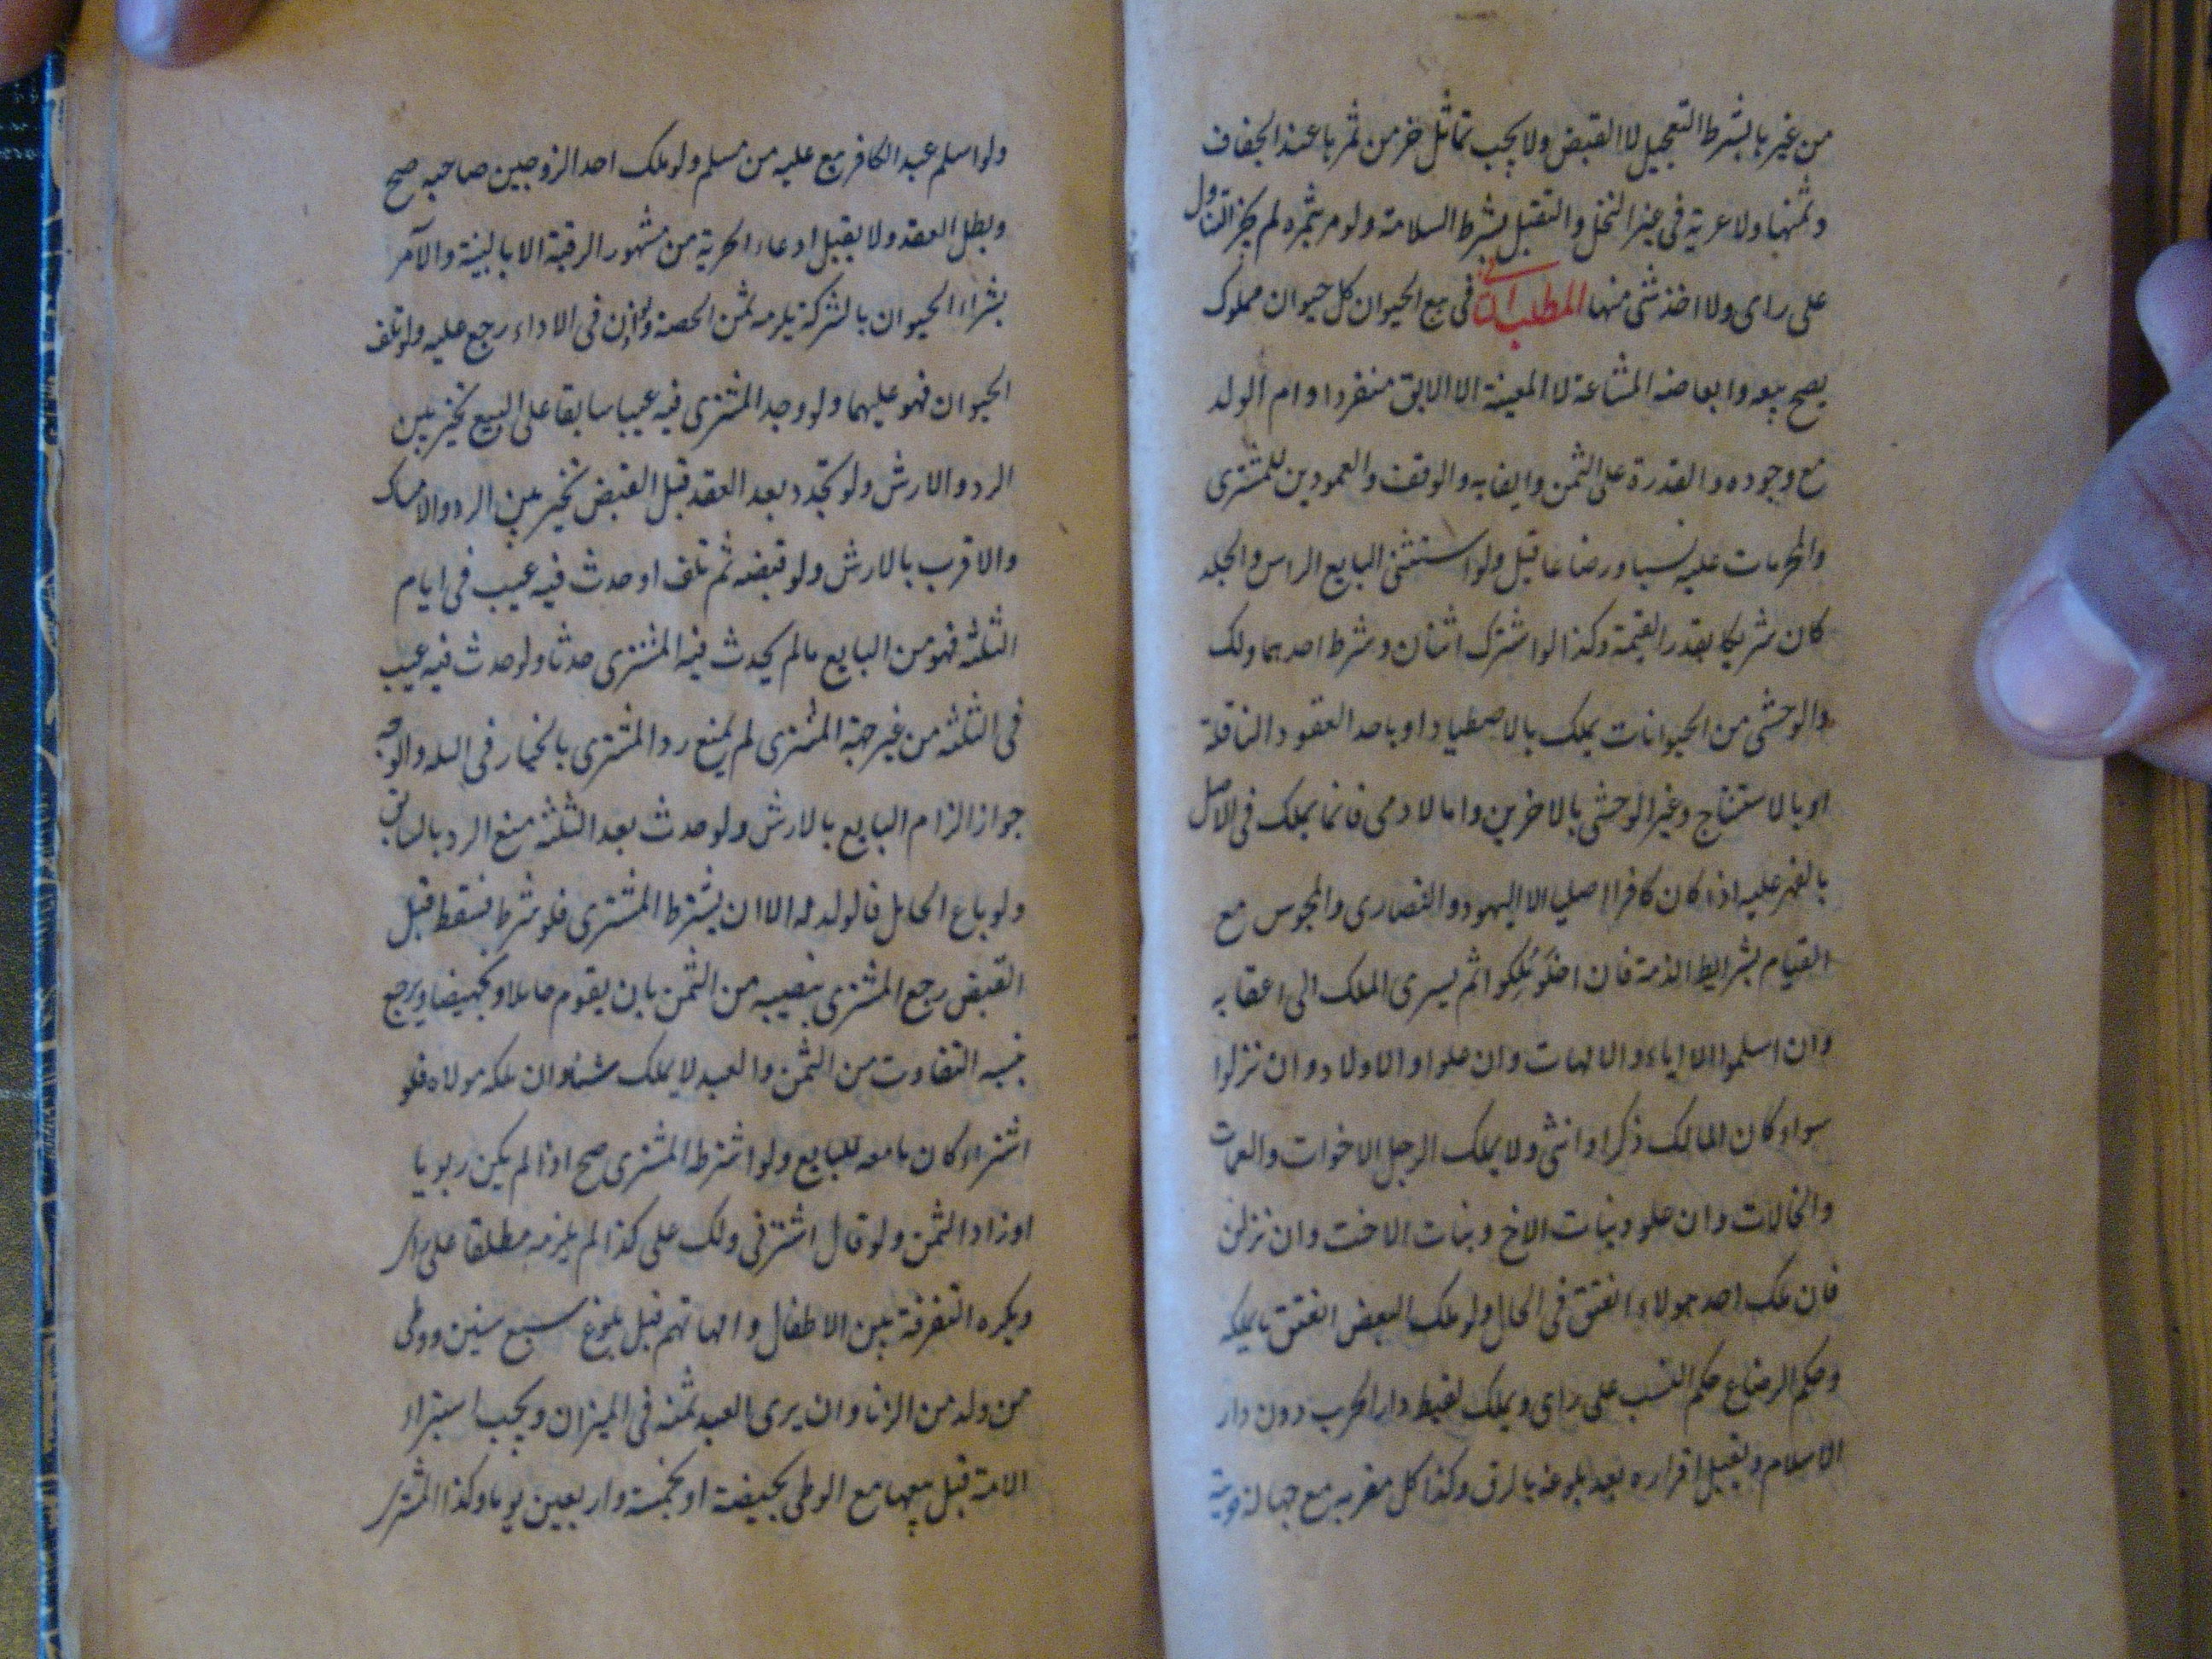 من غير ها بشرط التعجيل لا القبض ولا يجب تماثل خرص من ثمرها عند الجفاف
وثمنها ولا عرية في غير النخل والتقبل بشرط السلامة ولو مر بثمره لم يجز التناول
على راى ولا اخذ شئ منها المطلب الثاني في بيع الحيوان كل حيوان مملوك
يصح بيعه وابعاضه المشاعة لا المعينة الا الابق منفردا وام الولد
مع وجوده والقدرة على الثمن وايفايه والوقف والعمودين للمشترى
والمحرمات عليه نسبا ورضاعا قيل ولو استثنى البايع الراس والجلد
كان شريكا بقدر القيمة وكذا لو اشترك اثنان وشرط احدهما ذلك
والوحشى من الحيوانات يملك بالاصطياد او باحد العقود الناقلة
او بالاستنتاج وغير الوحشى بالاخرين واما الادمى فانما يملك في الاصل
بالقهر عليه اذا كان كافرا اصليا الا اليهود والنصارى والمجوس مع
القيام بشرايط الذمة فان اخلو مُلكوا ثم يسرى الملك الى اعقابه
وان اسلموا الا الاباء والامهات وان علوا والاولاد وان نزلوا
سواء كان المالك ذكرا او انثى ولا يملك الرجل الاخوات والعمات
والخالات وان علو وبنات الاخ وبنات الاخت وان نزلن
فان ملك احد هولاء انعتق في الحال ولو ملك البعض انعتق ما يملكه
وحكم الرضاع حكم النسب على راى ويملك لقيط دار الحرب دون دار
الاسلام ويقبل اقراره بعد بلوغه بالرق وكذا كل مقر به مع جهالة حريته
ولو اسلم عبد الكافر بيع عليه من مسلم ولو ملك احد الزوجين صاحبه صح
وبطل العقد ولا يقبل ادعاء الحرية من مشهور الرقية الا بالبينة والآمر
بشراء الحيوان بالشركة يلزمه ثمن الحصة ولو اذن في الاداء رجع عليه ولو تلف
الحيوان فهو عليهما ولو وجد المشترى فيه عيبا سابقا على البيع تخير بين
الرد والارش ولو تجدد بعد العقد قبل القبض تخير بين الرد والامساك
والاقرب بالارش ولو قبضه ثم تلف او حدث فيه عيب في ايام
الثلثه فهو من البايع مالم يحدث فيه المشترى حدثا ولو حدث فيه عيب
في الثلثه من غير جهة المشترى لم يمنع رد المشترى بالخيار في الثلثه والوجه
جواز الزام البايع بالارش ولو حدث بعد الثلثه منع الرد بالسابق
ولو باع الحامل فالولد له الا ان يشترط المشترى فلو شرط فسقط قبل
القبض رجع المشترى بنصيبه من الثمن بان يقوم حاملا ومجهيضا ويرجع
بنسبه التفاوت من الثمن والعبد لا يملك شئا وان ملكه مولاه فلو
اشتراه كان ما معه للبايع ولو اشترط المشترى صح اذا لم يكن ربويا
او زاد الثمن ولو قال اشترنى ولك على كذا لم يلزمه مطلقا على راى
ويكره التفرقة بين الاطفال وامهاتهم قبل بلوغ سبع سنين ووطى
من ولد من الزنا وان يرى العبد ثمنه في الميزان ويجب استبراء
الامة قبل بيعها مع الوطى بحيضة او بخمسة واربعين يوما وكذا المشترى